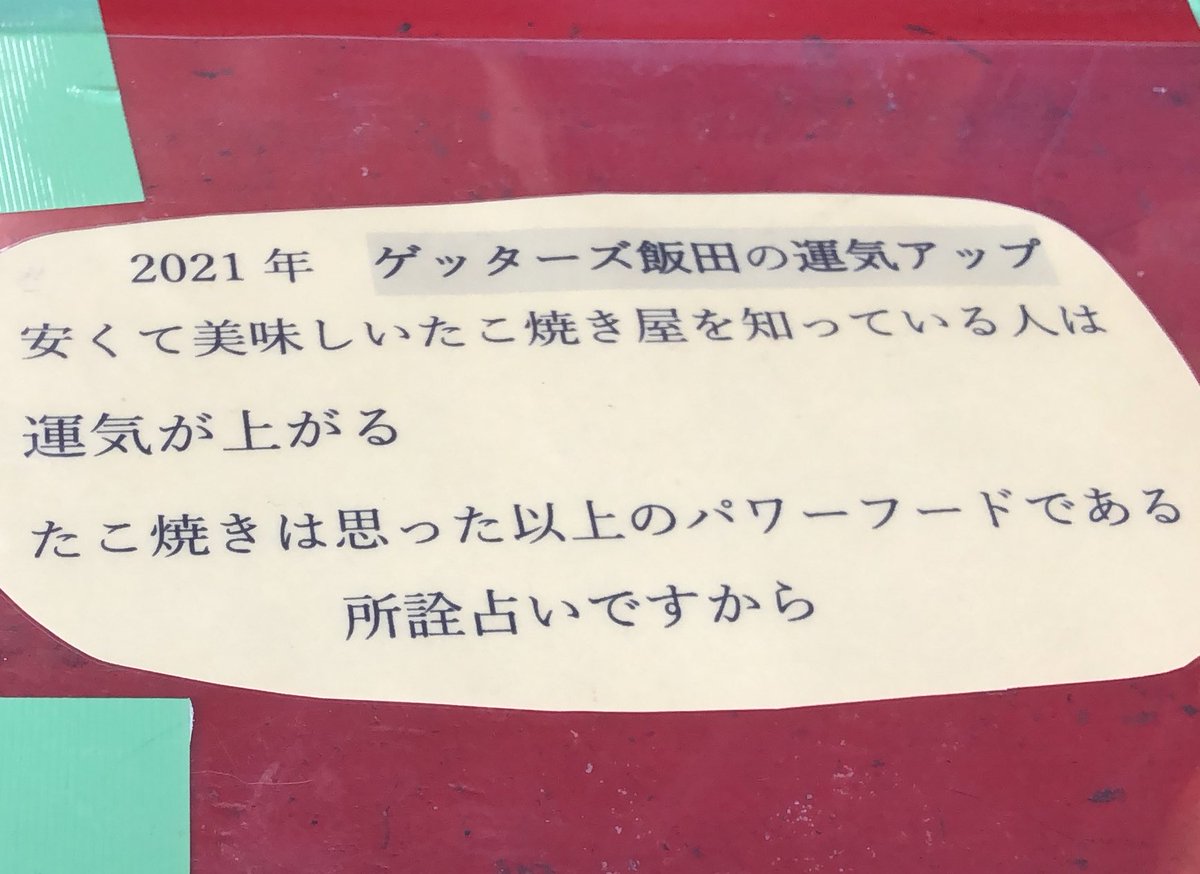 2021年　ゲッターズ飯田の運気アップ
安くて美味しいたこ焼き屋を知っている人は
運気が上がる
たこ焼きは思った以上のパワーフードである
所詮占いですから